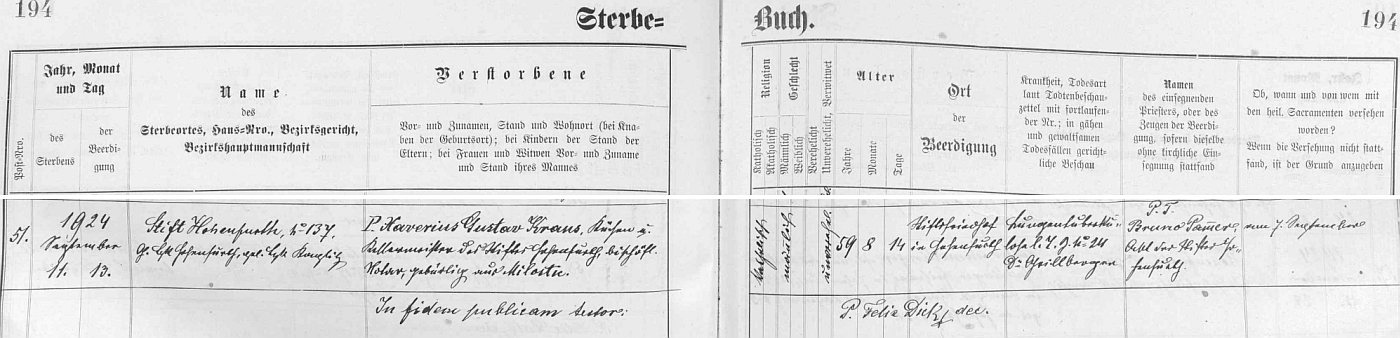 194
Sterbe=
Buch.
194
Post-Nro.
Jahr, Monat
und Tag
des
Sterbens
der
Beerdi-
gung
Name
des
Sterbeortes, Haus-Nro., Bezirksgericht,
Bezirkshauptmannschaft
Verstorbene
Vor- und Zunamen, Stand und Wohnort (bei Kna-
ben der Geburtsort); bei Kindern der Stand der
Eltern; bei Frauen und Witwen Vor- und Zuname
und Stand ihres Mannes
Religion
Katholisch
Akatholisch
Geschlecht
Männlich
Weiblich
Verehelicht
Unverehelicht, Verwitwet
Alter
Jahre
Monate
Tage
Ort
der
Beerdigung
Krankheit, Todesart
laut Todtenbeschau-
zettel mit fortlaufen-
der Nr.; in gähen
und gewaltsamen
Todesfällen gericht-
liche Beschau
Namen
des einsegnenden
Priesters, oder des
Zeugen der Beerdi-
gung, sofern dieselbe
ohne kirchliche Ein-
segnung stattfand
Ob, wann und von wem mit
den heil. Sacramenten versehen
worden?
Wenn die Versehung nicht statt-
fand, ist der Grund anzugeben
51.
1924
September
11. 13.
Stift Hohenfurth, No 137.
Hohenfurth, Kaplitz
P. Xaverius Gustav Kraus, Küchen u.
Kellermeister des Stiftes Hohenfurth, bischöfl.
Notar, gebürtig aus Milostín.
katholisch
männlich
unverehel.
59 8 14
Stiftsfriedhof
in Hohenfurth
Lungentuberku-
lose l. T. Z. No 24
P. T.
Bruno Pammer,
Abt des Stiftes Ho-
henfurth.
am 7. September
In fidem publicam testor:
P. Felix Dick, dec.